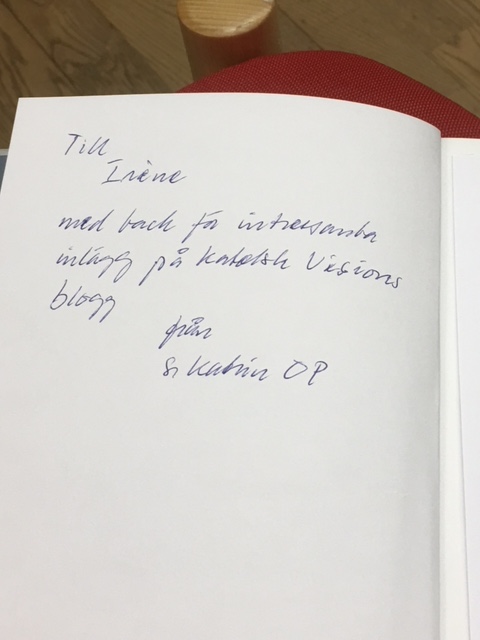 Till
Irène
med tack för intressanta
inlägg på Katolsk Visions
blogg
från
Sr Katrin OP